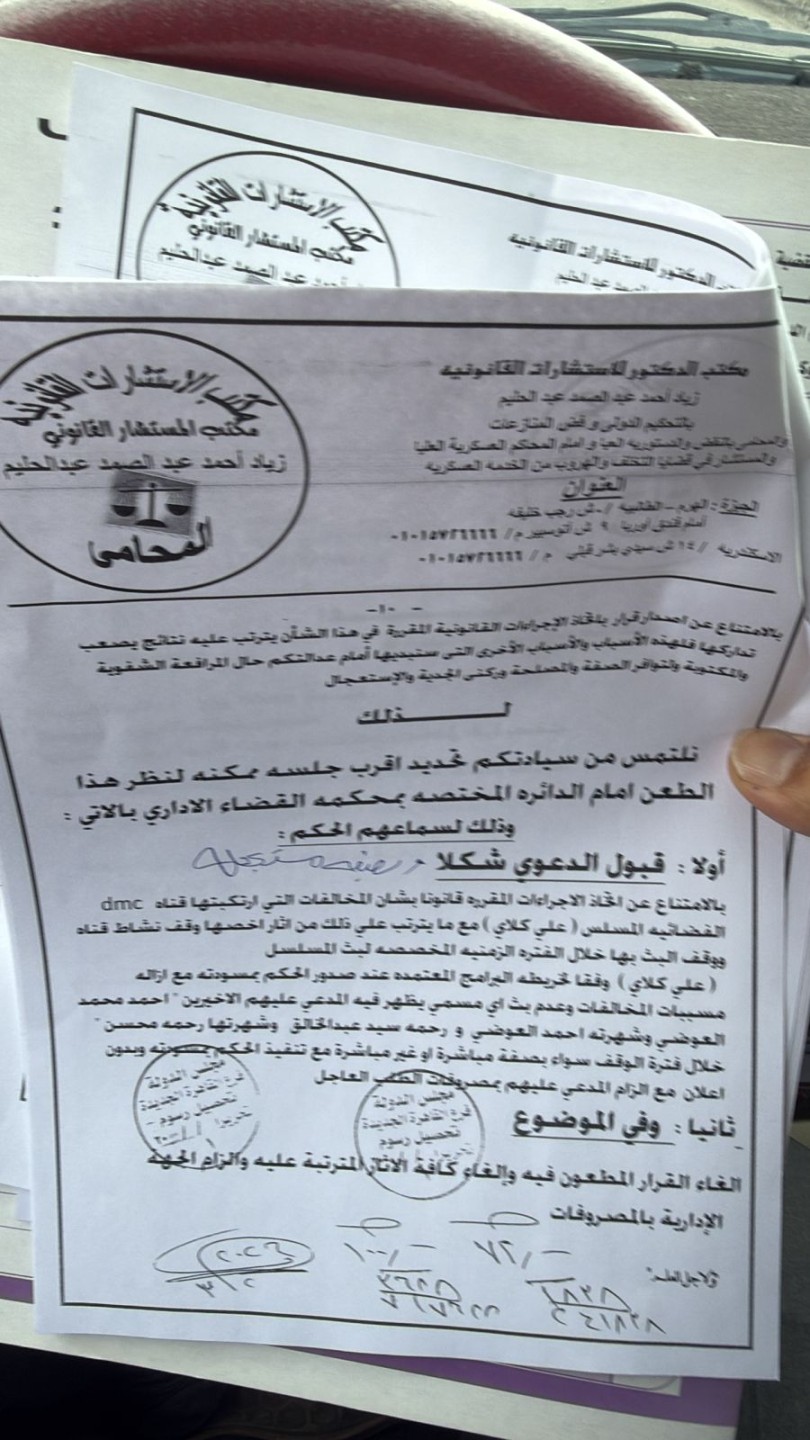 مكتب الاستشارات القانونية
مكتب المستشار القانوني
أحمد عبد الصمد عبدالحليم
مكتب الدكتور للاستشارات القانونيه
مكتب الاستشارات القانونيه
مكتب المستشار القانوني
زياد أحمد عبد الصمد عبدالحليم
المحامى
مكتب الدكتور للاستشارات القانونيه
زياد أحمد عبد الصمد عبد الحليم
بالتحكيم الدولى وفض المنازعات
والمحامي بالنقض والدستوريه العيا و امام المحكم العسكرية العليا
والمستشار في قضايا التخلف والهروب من الخدمه العسكريه
العنوان
الجيزة : الهرم – الطالبيه / ش رجب خليفه
أمام فندق اوربا ٩ ش اتوسيير م / ٠١٠١٥٧٢٦٦٦٦
الاسكندريه // ١٤ ش سيدي بشر قبلي م / ٠١٠١٥٧٢٦٦٦٦
-١٠-
بالامتناع عن اصدار قرار باتخاذ الإجراءات القانونية المقررة في هذا الشأن يترتب عليه نتائج يصعب
تداركها فلهذه الأسباب والأسباب الأخرى التي سنبديها أمام عدالتكم حال المرافعة الشفوية
والمكتوبة ولتوافر الصفة والمصلحة وركنى الجدية والإستعجال
لـــــــذلك
نلتمس من سيادتكم تحديد اقرب جلسه ممكنه لنظر هذا
الطعن امام الدائره المختصه بمحكمه القضاء الاداري بالاتي :
وذلك لسماعهم الحكم :
أولا : قبول الدعوي شكلا
بالامتناع عن اتخاذ الاجراءات المقرره قانونا بشان المخالفات التي ارتكبتها قناه dmc
الفضائيه المسلس ( علي كلاي ) مع ما يترتب علي ذلك من اثار اخصها وقف نشاط قناه
ووقف البث بها خلال الفتره الزمنيه المخصصه لبث المسلسل
( علي كلاي ) وفقا لخريطه البرامج المعتمده عند صدور الحكم بمسودته مع ازاله
مسببات المخالفات وعدم بث اي مسمي يظهر فيه المدعي عليهم الاخيرين " احمد محمد
العوضي وشهرته احمد العوضي و رحمه سيد عبدالخالق وشهرتها رحمه محسن "
خلال فترة الوقف سواء بصفة مباشرة او غير مباشرة مع تنفيذ الحكم بمسودته وبدون
اعلان مع الزام المدعي عليهم بمصروفات الطلب العاجل
مجلس الدولة
فرع القاهرة الجديدة
تحصيل رسوم
مجلس الدولة
فرع القاهرة الجديدة
تحصيل رسوم
ثانيا : وفي الموضوع
الغاء القرار المطعون فيه وإلغاء كافة الاثار المترتبة عليه والزام الجهه
الإدارية بالمصروفات
٧٢,-
١٠٠,-
٢٠٢٦
٣/٢